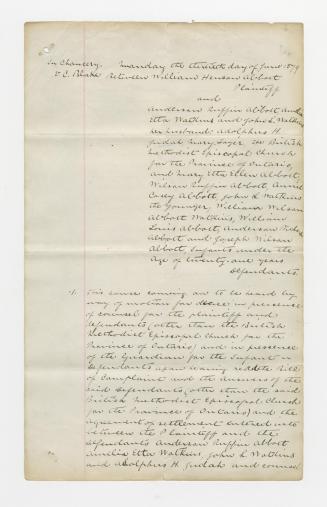 In Chancery. Monday the thirtieth day of June 1879
V. C. Blake Between William Henson Abbott
Plaintiff
and
Anderson Ruffin Abbott
Etta Watkins and John L. Watkins
her husband. Adolphus H.
Judah Mary Lozer The British
Methodist Episcopal Church
for the Province of Ontario
and Mary Etta Ellen Abbott,
Wilson Ruffin Abbott, Annie
Casey Abbott, John L Watkins
the Younger, William Wilson
Abbott Watkins, William
Louis Abbott, Anderson
Abbott and Joseph Wilson
Abbott, Infants under the
Age of twenty-one years
Defendants.
1. This cause coming on to be heard by
way of motion for decree in presence
of counsel for the plaintiff and
defendants (other than the British
Methodist Episcopal Church for the
Province of Ontario) and in presence
of the Guardian for the Infant
defendants upon hearing read the Bill
of Complaint and the answers of the
said defendants (other than the said
British Methodist Episcopal Church
for the Province of Ontario) and the
agreement of settlement entered into
between the Plaintiff and the
defendants Anderson Ruffin Abbott
Amelia Etta Watkins John L Watkins
and Adolphus H Judah and counsel